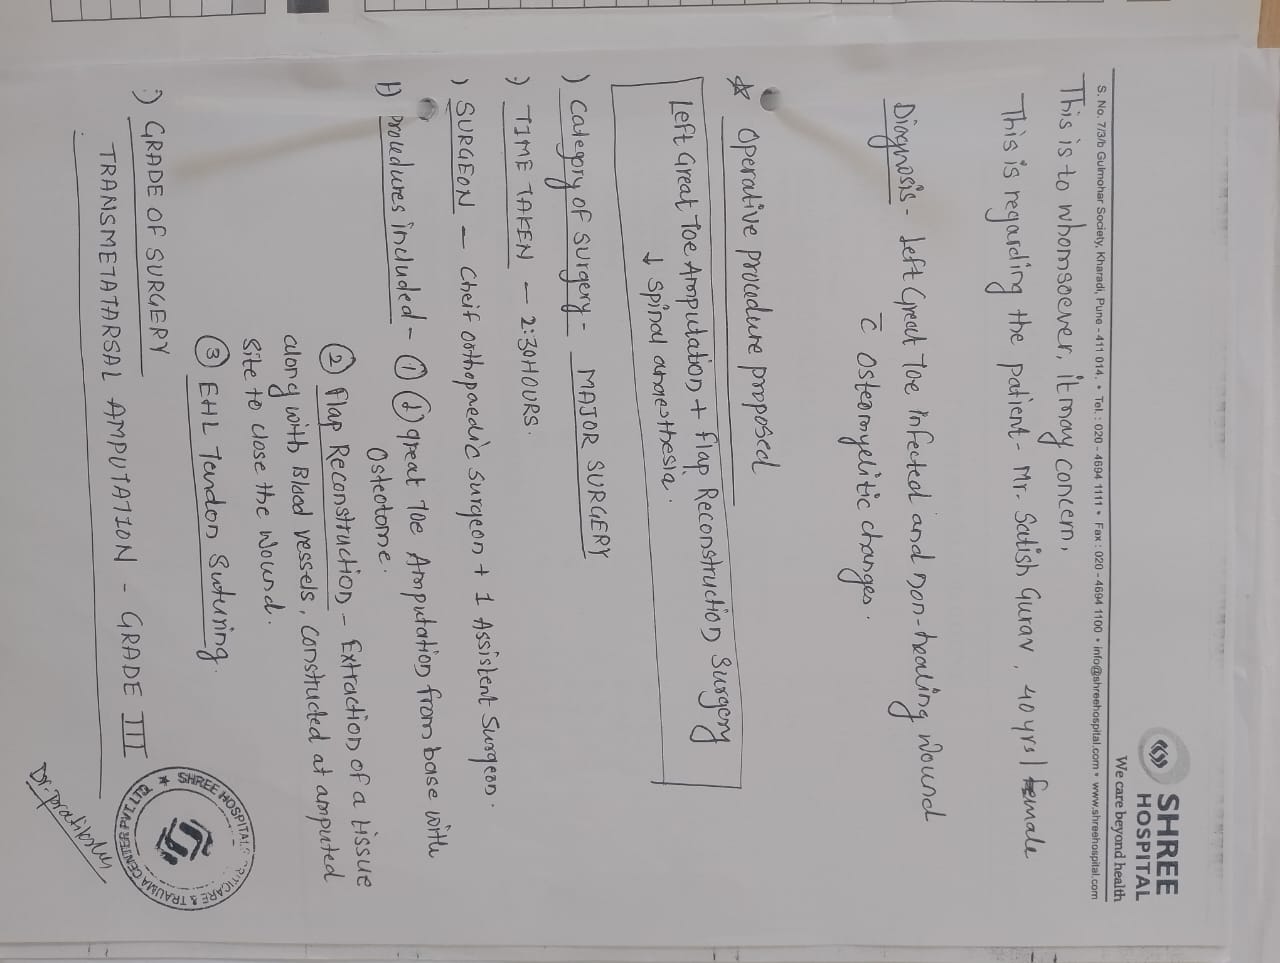 SHREE
HOSPITAL
We care beyond health
S. No. 7/3/b Gulmohar Society, Kharadi, Pune - 411 014. • Tel. : 020 - 4694 1111 • Fax : 020 - 4694 1100 • info@shreehospital.com • www.shreehospital.com
This is to whomsoever, it may concern,
This is regarding the patient - Mr. Satish Gurav, 40 yrs / male
Diagnosis - Left Great Toe infected and non-healing wound
c̄ osteomyelitic changes.
☆ Operative procedure proposed
Left Great Toe Amputation + flap Reconstruction Surgery
↓ spinal anaesthesia.
) Category of surgery - MAJOR SURGERY
) TIME TAKEN - 2:30 HOURS.
) SURGEON - Cheif orthopaedic surgeon + 1 Assistent Surgeon.
) Procedures included - ① (L) great Toe Amputation from base with
Osteotome.
② flap Reconstruction - Extraction of a tissue
along with Blood vessels, constructed at amputed
site to close the wound.
③ EHL Tendon Suturing.
) GRADE OF SURGERY
TRAMSMETATARSAL AMPUTATION - GRADE III
SHREE HOSPITAL CRITICARE & TRAUMA CENTER PVT LTD
Dr.